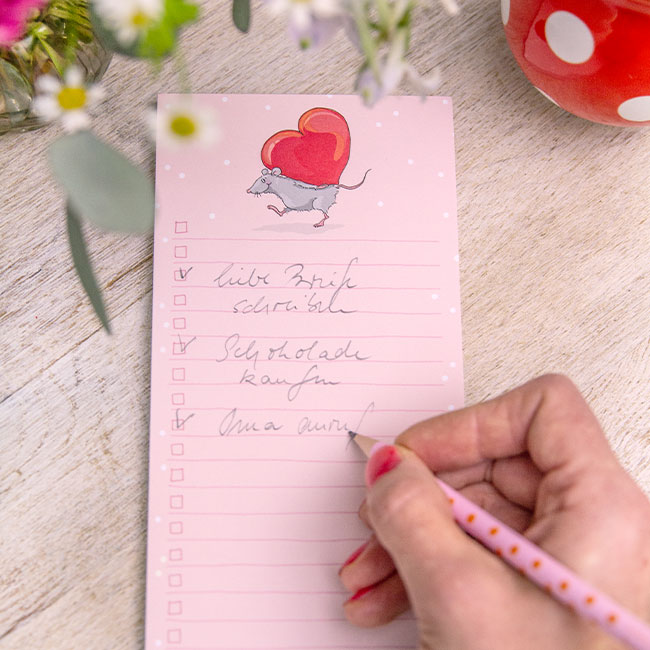 liebe Briefe
schreiben
Schokolade
kaufen
Oma anruf